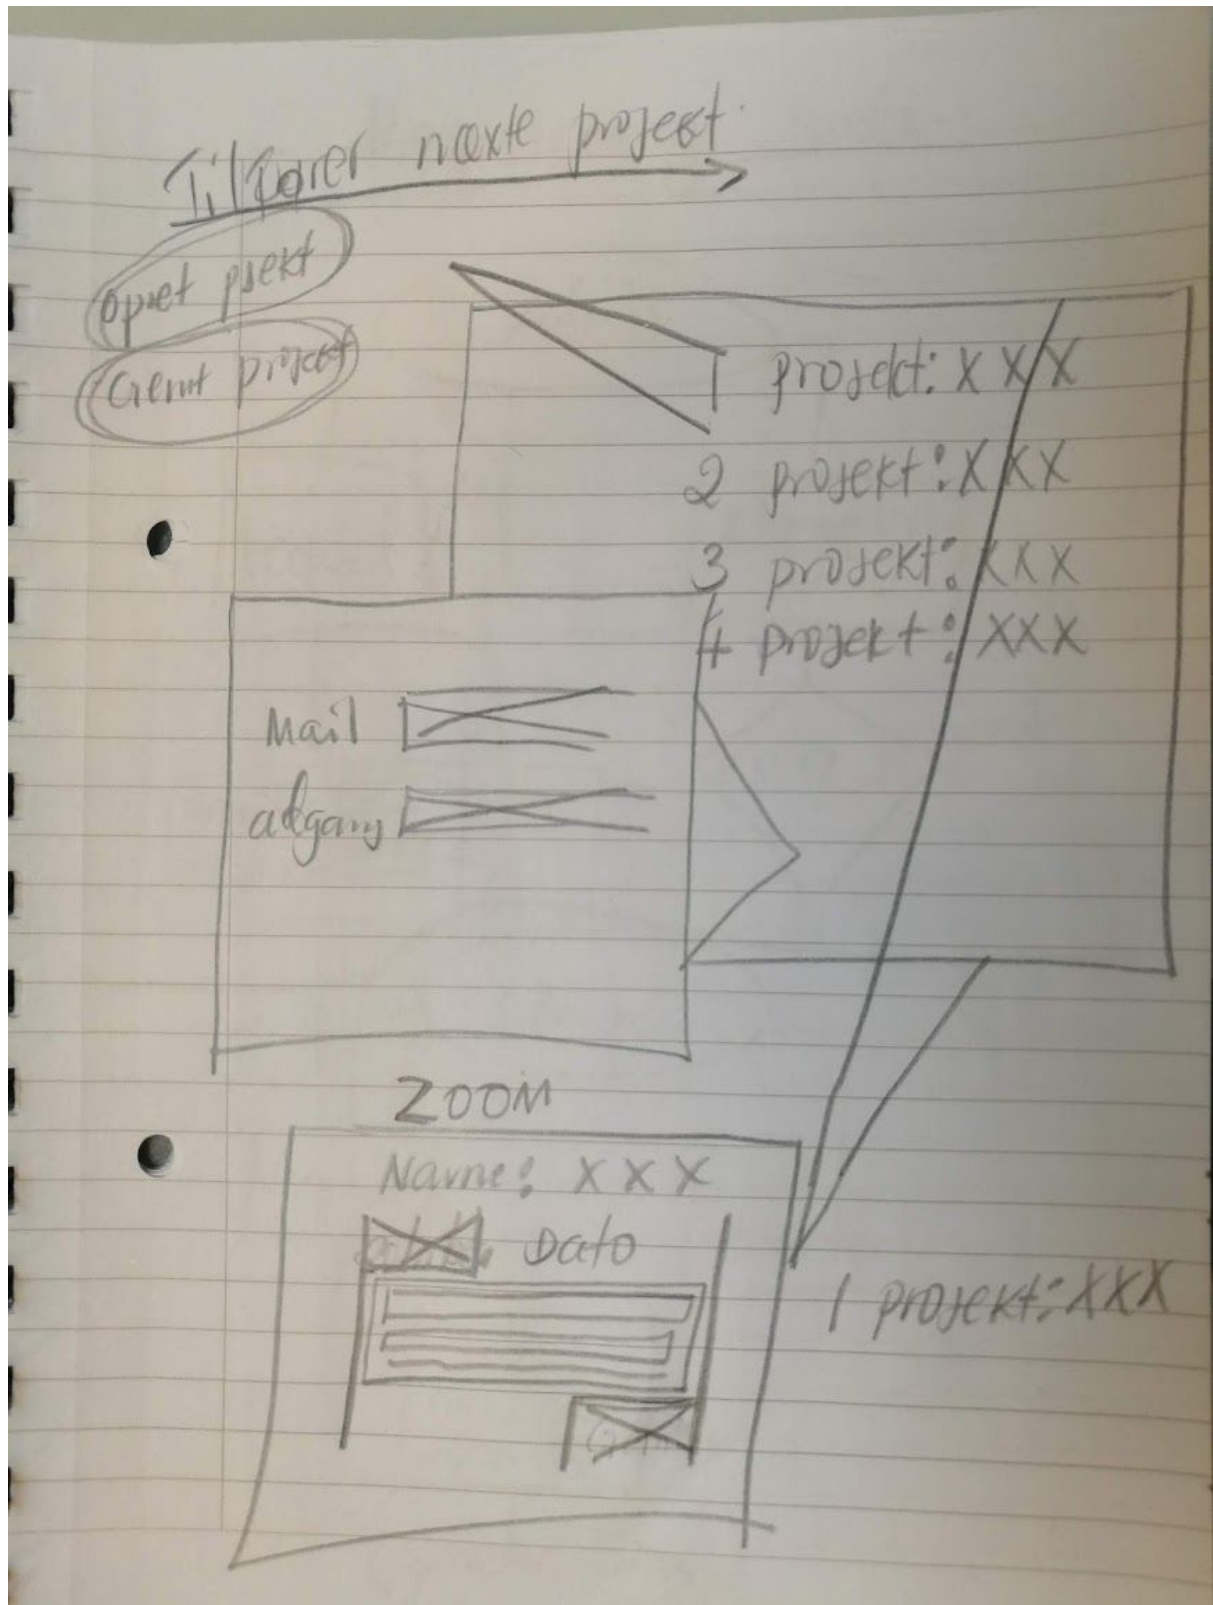 Tilføjer næxte projekt
opret pjekt
Gemt projekt
1 projekt: XXX
2 projekt: XXX
3 projekt: XXX
4 projekt: XXX
Mail
adgang
ZOOM
Navne: XXX
Dato
1 projekt: XXX